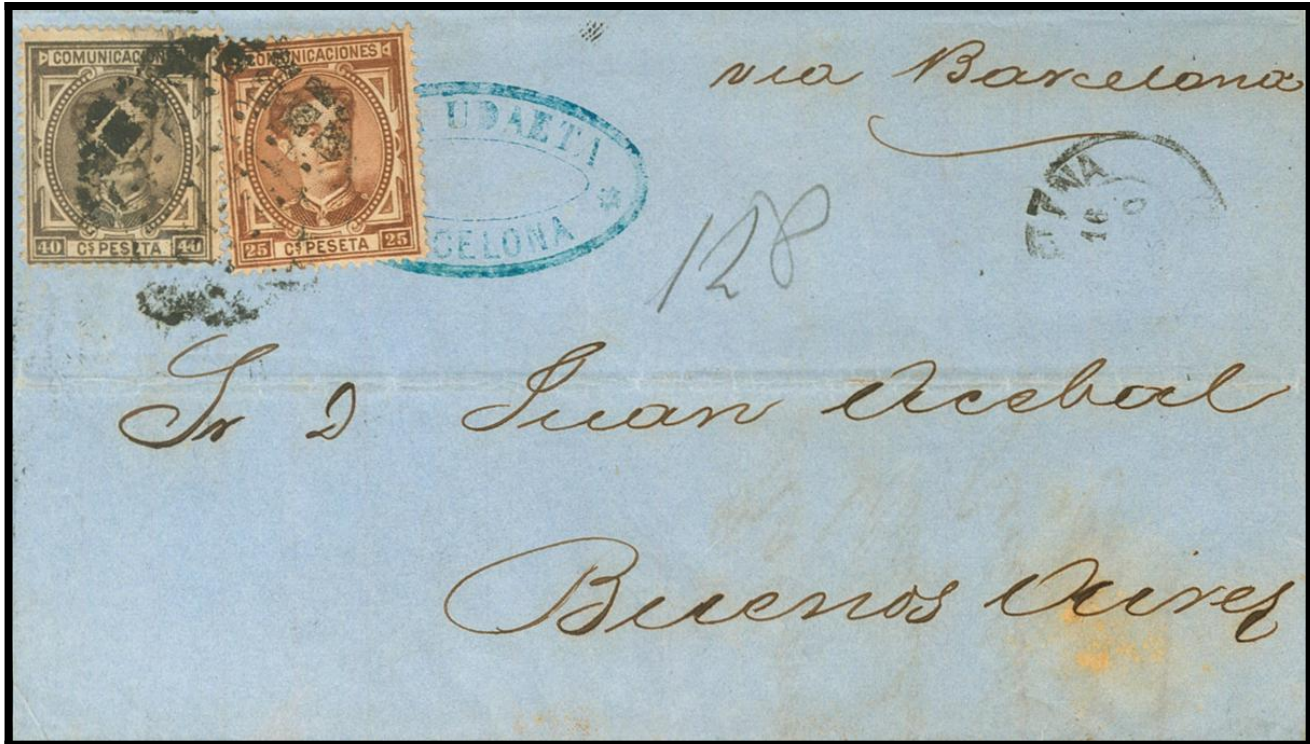 COMUNICACIONES
40 Cs PESETA 40
COMUNICACIONES
25 Cs PESETA 25
UDAETA
BARCELONA
via Barcelona
128
16
Sr D Juan Acebal
Buenos Aires